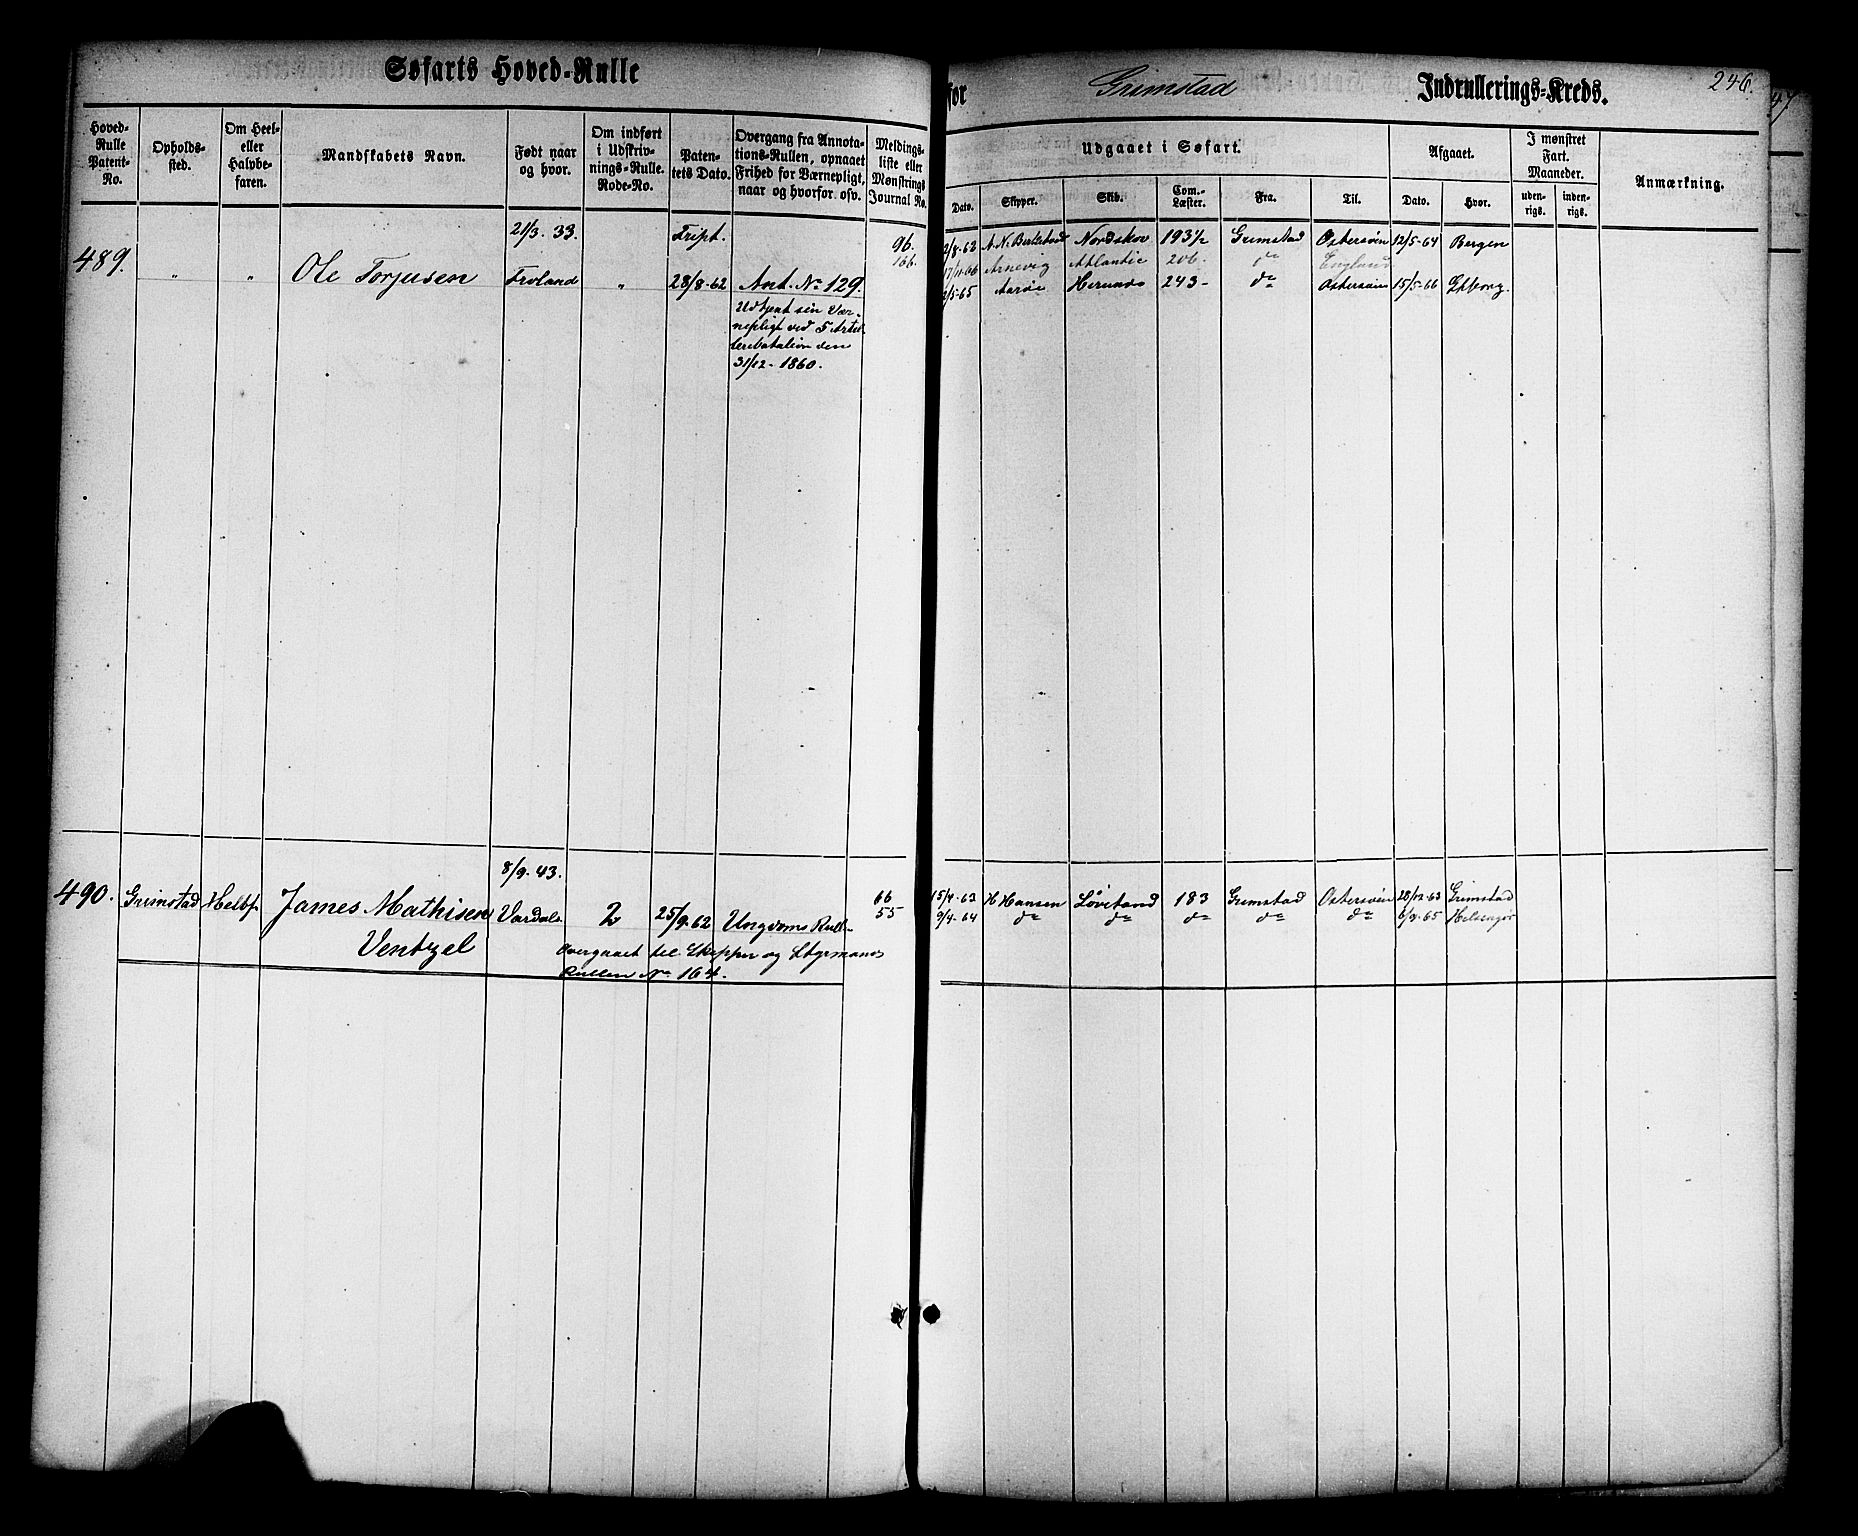 Søfarts Hoved-Rulle
for Grimstad Indrullerings-Kreds. 246.
47
Hoved-Rulle Patent-No.
Opholdssted.
Om Heel- eller Halvbefaren.
Mandskabets Navn.
Født naar og hvor.
Om indført i Udskrivnings-Rulle. Rode-No.
Patentets Dato.
Overgang fra Annotations-Rullen, opnaaet Frihed for Værnepligt, naar og hvorfor osv.
Meldingsliste eller Mønstrings Journal No.
Udgaaet i Søfart.
Dato. Skipper. Skib. Com.-Læster. Fra. Til.
Afgaaet.
Dato. Hvor.
I mønstret Fart. Maaneder.
udenrigs. indenrigs.
Anmærkning.
21/3. 33. Fript. 96.
489. " " Ole Torjusen Froland " 28/8-62 Ant. No 129. 166.
Udtjent sin Værnepligt ved 5 Artilleribatalion den
31/12-1860.
2/8-62 Nordskov 193½ Grimstad Østersøen 12/5-64 Bergen
17/11-66 Arnevig Atlantic 206. do England
2/5-65 Aarøe 243- do Østersøen 15/5-66
8/9. 43.
490. Grimstad Helbf. James Mathisen Vardal 2 25/9-62 Ungdoms Rull 66
Ventzel 55
overgaaet til Skipper og Styrmands
Rullen No 164.
15/9-63 H Hansen Løvetand 183 Grimstad Østersøen 28/12-63 Grimstad
9/4-64 do do do do do 6/9-65 Helsingør